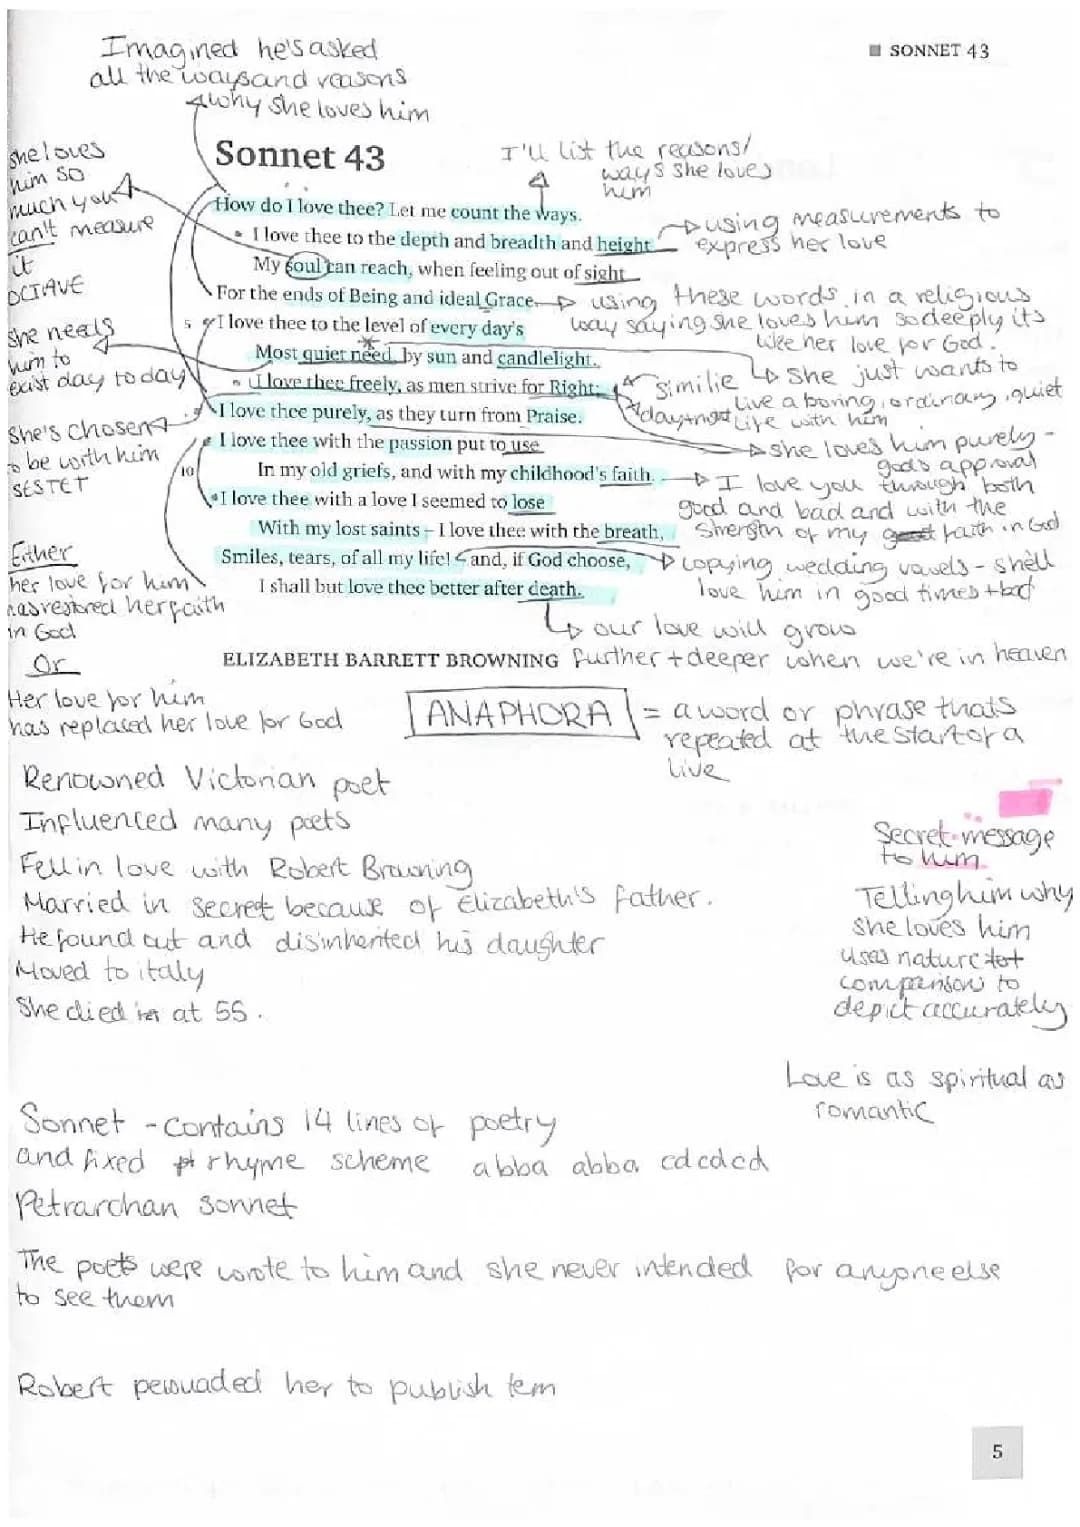 Imagined he's asked
all the ways and reasons
why she loves him
■ SONNET 43
Sonnet 43
I'll list the reasons/
ways she loves
him
she loves
him so
much you
can't measure
it
OCTAVE
she needs
him to
exist day to day
She's chosen
to be with him
SESTET
How do I love thee? Let me count the ways.
I love thee to the depth and breadth and height
My soul can reach, when feeling out of sight
For the ends of Being and ideal Grace.
5 I love thee to the level of every day's
Most quiet need, by sun and candlelight.
I love thee freely, as men strive for Right;
I love thee purely, as they turn from Praise.
I love thee with the passion put to use
10 In my old griefs, and with my childhood's faith.
I love thee with a love I seemed to lose
With my lost saints – I love thee with the breath,
Smiles, tears, of all my life! – and, if God choose,
I shall but love thee better after death.
using measurements to
express her love
using these words in a religious
way saying she loves him so deeply its
like her love for God.
similie
day + night
She just wants to
live a boring, ordinary, quiet
life with him
she loves him purely -
gods approval
I love you through both
good and bad and with the
strength of my faith in God
copying wedding vowels - she'll
love him in good times + bad
our love will grow
further + deeper when we're in heaven
Either
her love for him
has restored her faith
in God
Or
Her love for him
has replaced her love for God
ELIZABETH BARRETT BROWNING
ANAPHORA = a word or phrase thats
repeated at the start of a
live
Renowned Victorian poet
Influenced many poets
Fell in love with Robert Browning
Married in secret because of Elizabeth's father.
He found out and disinherited his daughter
Moved to italy
She died at 55.
Secret message
to him
Telling him why
she loves him
uses nature
comparison to
depict accurately
Love is as spiritual as
romantic
Sonnet - contains 14 lines of poetry
and fixed rhyme scheme abba abba cdcdcd
Petrarchan sonnet
The poets were wrote to him and she never intended for anyone else
to see them
Robert persuaded her to publish tem
5